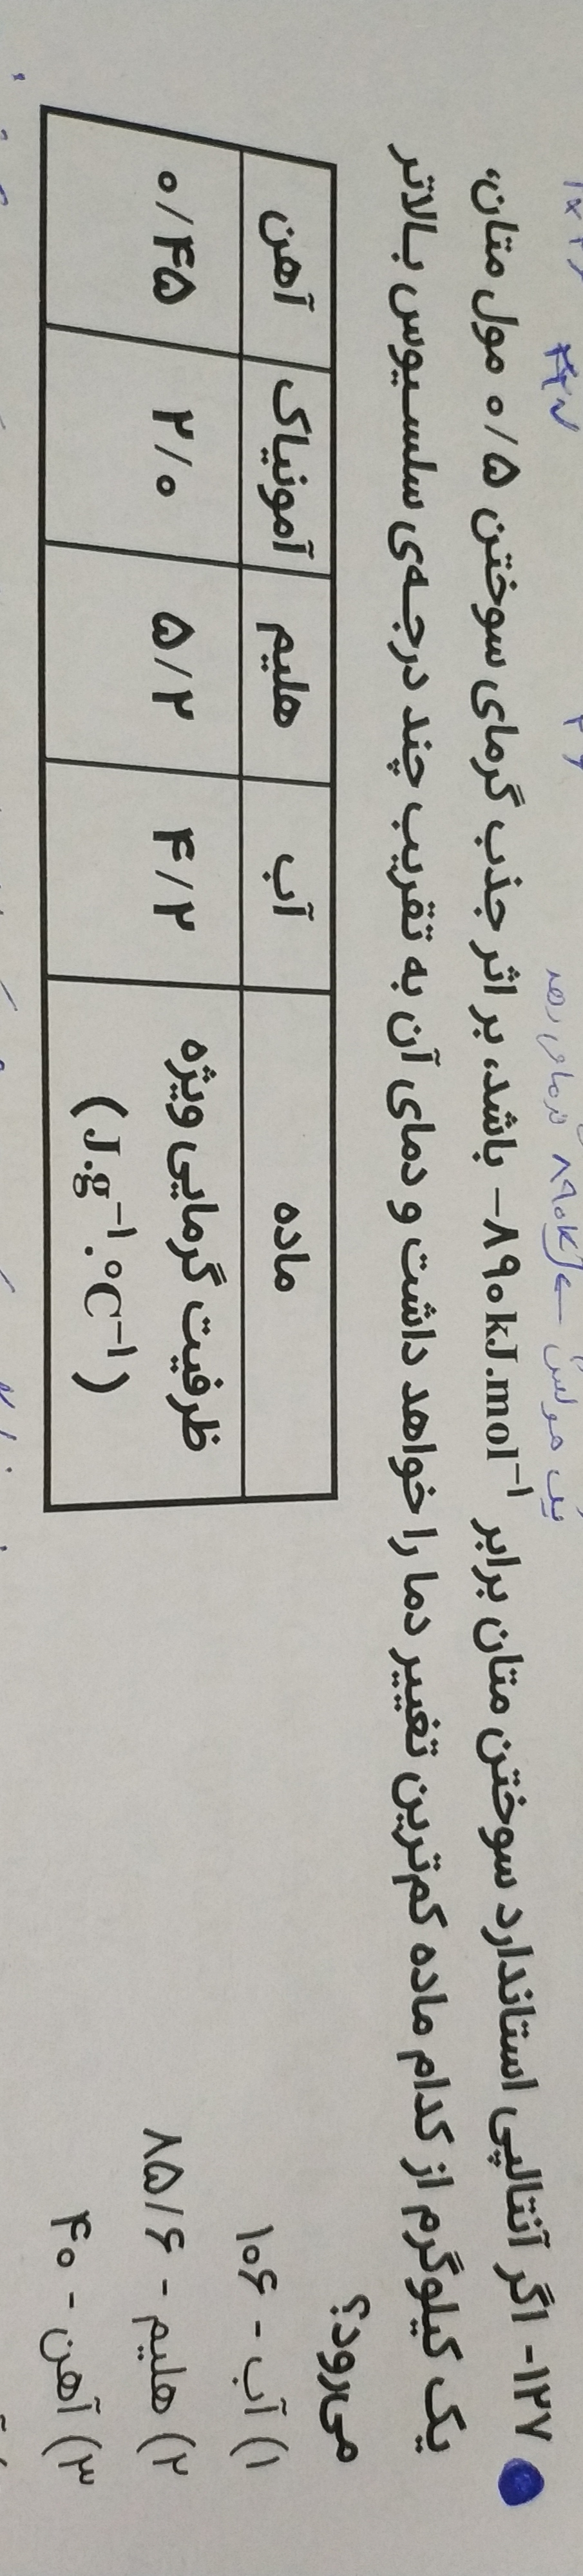 یک مولش → ۸۹۰kJ گرمای
۱۲۷- اگر آنتالپی استاندارد سوختن متان برابر ‎−۸۹۰ kJ.mol⁻¹ باشد، بر اثر جذب گرمای سوختن ۰/۵ مول متان،
یک کیلوگرم از کدام ماده کم‌ترین تغییر دما را خواهد داشت و دمای آن به تقریب چند درجه‌ی سلسیوس بالاتر
می‌رود؟
ماده آب هلیم آمونیاک آهن
ظرفیت گرمایی ویژه (J.g⁻¹.°C⁻¹) ۴/۲ ۵/۲ ۲/۰ ۰/۴۵
۱) آب - ۱۰۶
۲) هلیم - ۸۵/۶
۳) آهن - ۴۰